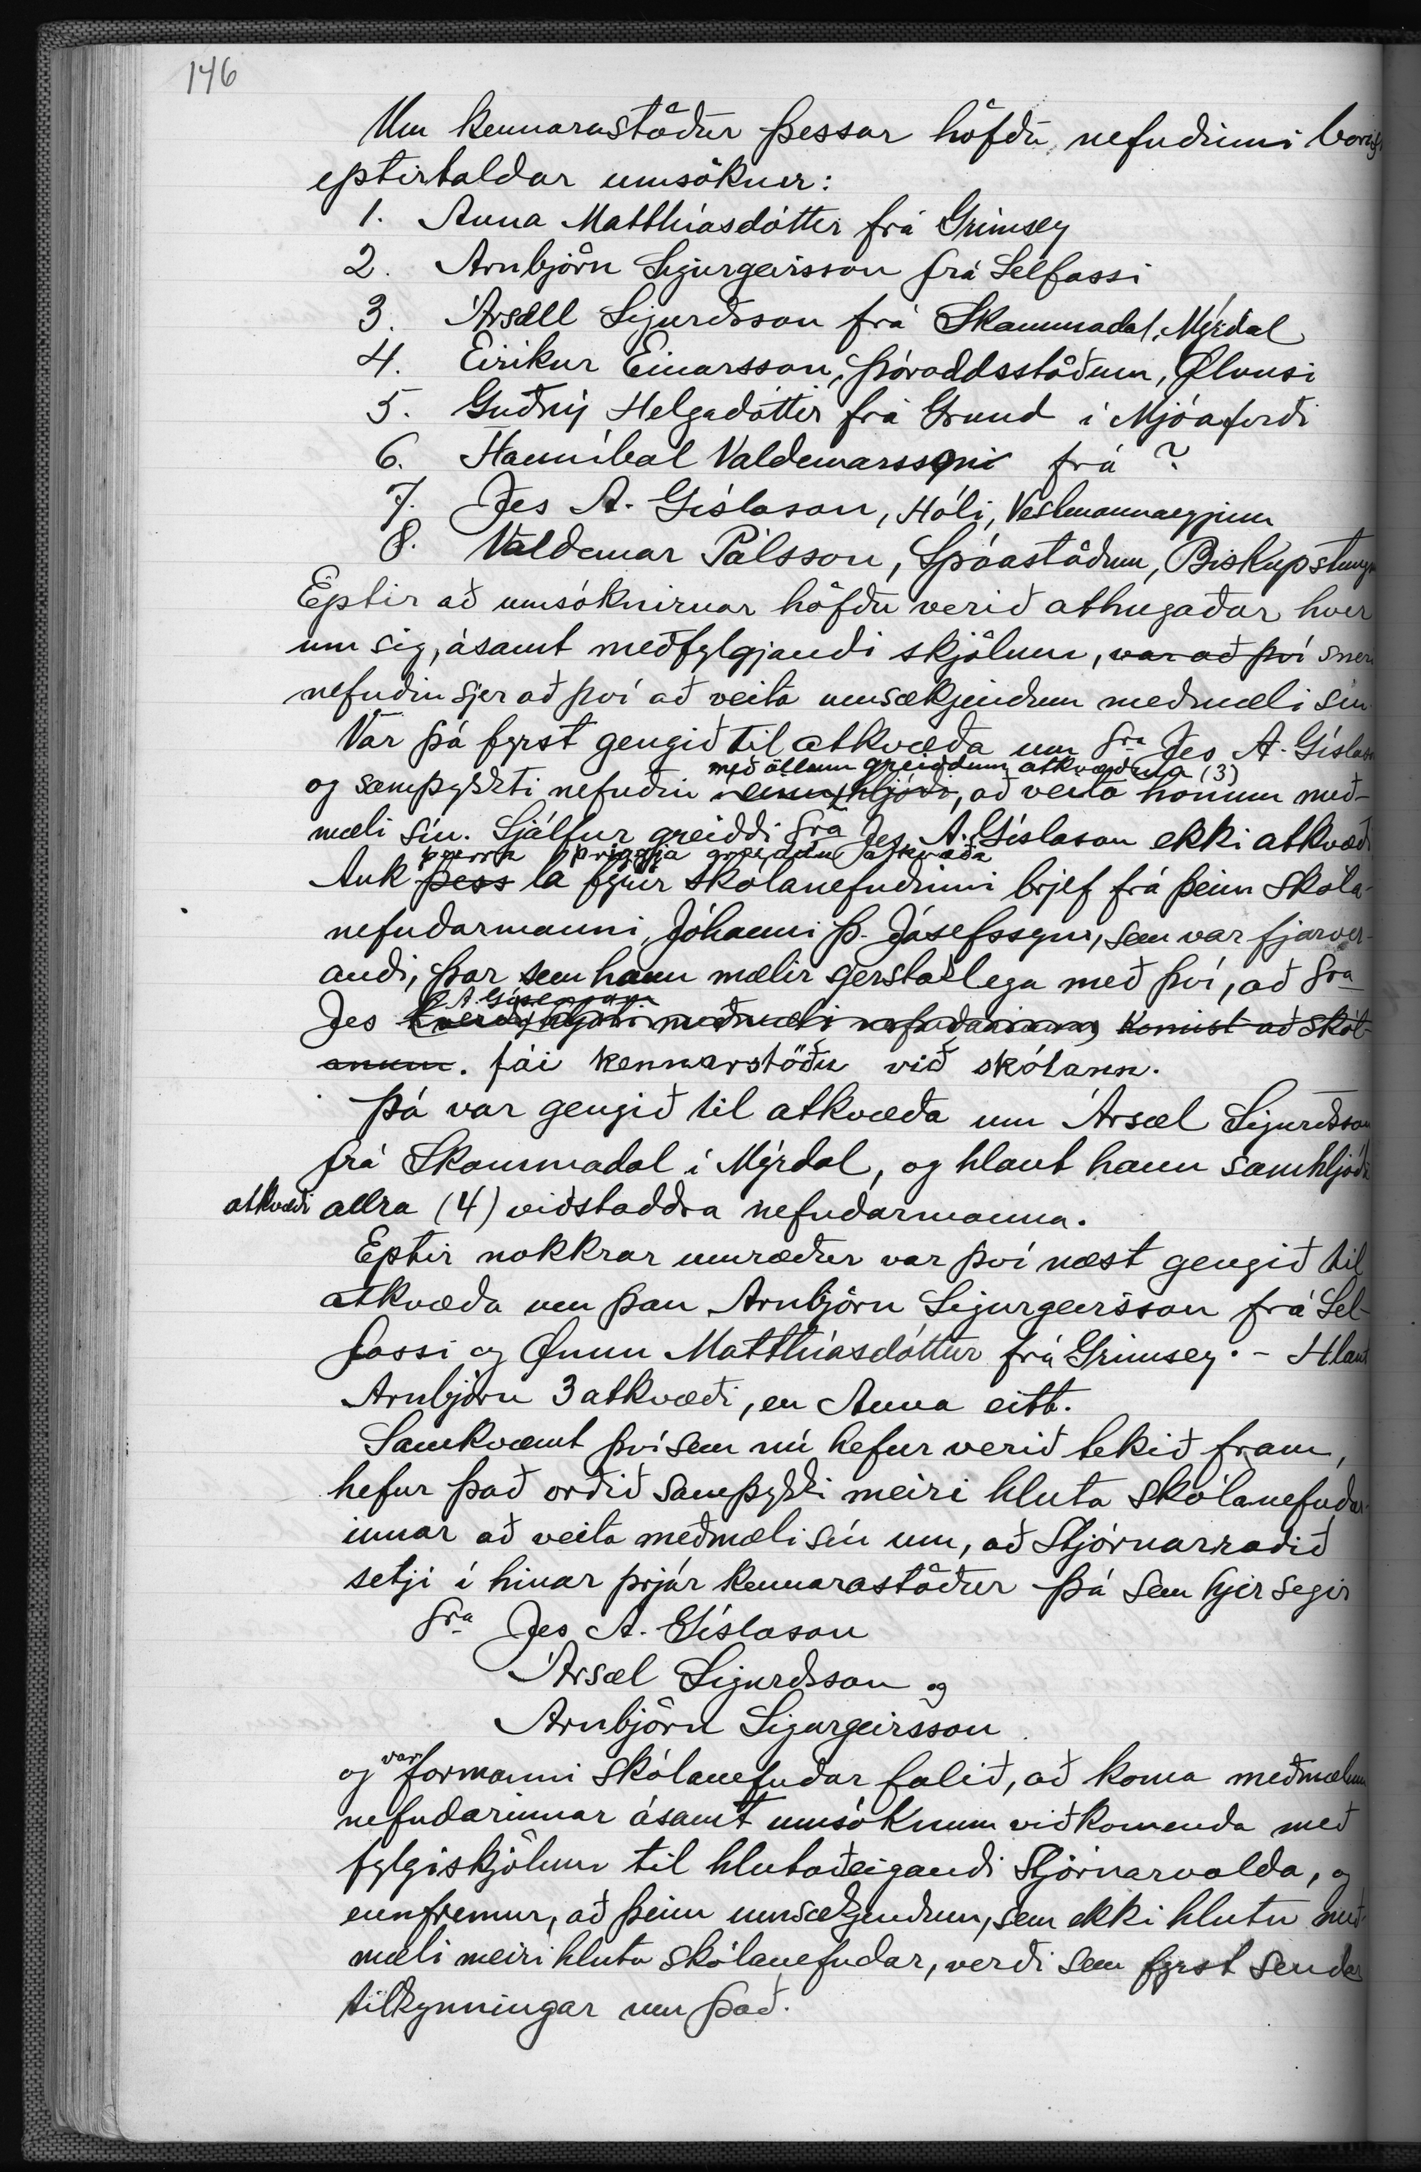 146
Um kennarastöður þessar höfðu nefndinni borist
eptirtaldar umsóknir:
1. Anna Matthíasdóttir frá Grímsey
2. Arnbjörn Sigurgeirsson frá Selfossi
3. Ársæll Sigurðsson frá Skammadal, Mýrdal
4. Eiríkur Einarsson, Þóroddsstöðum, Ølvusi
5. Guðný Helgadóttir frá Grund í Mjóafirði
6. Hanníbal Valdemarsson frá ?
7. Jes A. Gíslason, Hóli, Vestmannaeyjum
8. Valdemar Pálsson, Spóastöðum, Biskupstung
Eptir að umsóknirnar höfðu verið athugaðar hver
um sig, ásamt meðfylgjandi skjölum, var að því sneri
nefndin sjer að því að veita umsækjendum meðmæli sín.
Var þá fyrst gengið til atkvæða um sra Jes A. Gíslason
með öllum greiddum atkvæðum (3)
og samþykkti nefndin í einu hljóði, að veita honum með-
mæli sín. Sjálfur greiddi sra Jes A. Gíslason ekki atkvæði
þeirra þriggja greiddu atkvæða
Auk þess lá fyrir skólanefndinni brjef frá þeim skóla-
nefndarmanni, Jóhanni Þ. Jósefssyni, sem var fjarver-
andi, þar sem hann mælir sjerstaklega með því, að sra
A. Gíslason
Jes verði meðmæli nefndarinnar komist að skól-
anum. fái kennarstöðu við skólann.
Þá var gengið til atkvæða um Ársæl Sigurðsson
frá Skammadal í Mýrdal, og hlaut hann samhljóða
atkvæði allra (4) viðstaddra nefndarmanna.
Eptir nokkrar umræður var því næst gengið til
atkvæða um þau Arnbjörn Sigurgeirsson frá Sel-
fossi og Ønnu Matthíasdóttur frá Grímsey. - Hlaut
Arnbjörn 3 atkvæði, en Anna eitt.
Samkvæmt því sem nú hefur verið tekið fram,
hefur það orðið samþykki meiri hluta skólanefndar-
innar að veita meðmæli sín um, að Stjórnarráðið
setji í hinar þrjár kennarastöður þá sem hjer segir
sra Jes A. Gíslason
Ársæl Sigurðsson og
Arnbjörn Sigurgeirsson
og var formanni skólanefndar falið, að koma meðmælum
nefndarinnar ásamt umsóknum viðkomenda með
fylgiskjölum til hlutaðeigandi Stjórnarvalda, og
ennfremur, að þeim umsækjendum, sem ekki hlutu með-
mæli meiri hluta skólanefndar, verði sem fyrst sendar
tilkynningar um það.